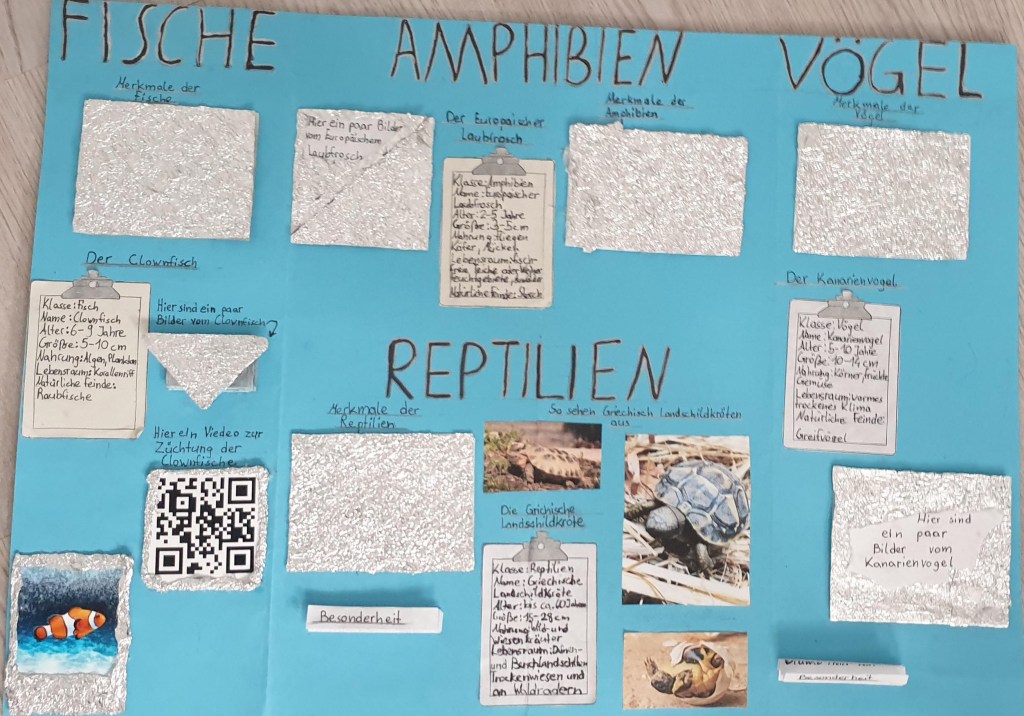 FISCHE
Merkmale der
Fische
Der Clownfisch
Klasse: Fisch
Name: Clownfisch
Alter: 6-9 Jahre
Größe: 5-10 cm
Nahrung: Algen, Plankton
Lebensraum: Korallenriff
Natürliche Feinde:
Raubfische
Hier sind ein paar
Bilder vom Clownfisch
Hier ein Viedeo zur
Züchtung der
Clownfische
AMPHIBIEN
Hier ein paar Bilder
vom Europäischem
Laubfrosch
Der Europäischer
Laubfrosch
Klasse: Amphibien
Name:
Laubfrosch
Alter: 2-5 Jahre
Größe: 3-5cm
Nahrung: Fliegen
Käfer, Mücken
Lebensraum:
Natürliche Feinde: Storch
Merkmale der
Amphibien
REPTILIEN
Merkmale der
Reptilien
Besonderheit
So sehen Griechisch Landschildkröten
aus
Die Grichische
Landschildkröte
Klasse: Reptilien
Name: Griechische
Landschildkröte
Alter: bis ca. 60 Jahren
Größe: 18-28cm
Nahrung: Wild- und
Wiesenkräuter
Lebensraum: Dünen-
und Buschlandschaften
Trockenwiesen und
an Waldrädern
VÖGEL
Merkmale der
Vögel
Der Kanarienvogel
Klasse: Vögel
Name: Kanarienvogel
Alter: 5-10 Jahre
Größe: 10-14 cm
Nahrung: Körner, früchte
Gemüse
Lebensraum: warmes
trockenes Klima
Natürliche Feinde:
Greifvögel
Hier sind
ein paar
Bilder vom
Kanarienvogel
Besonderheit